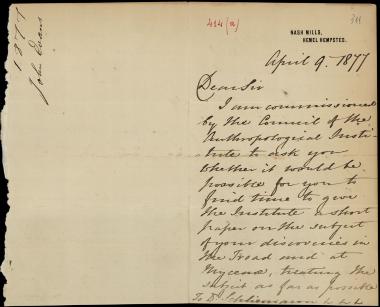 1877
John Evans
414(a)
311
NASH MILLS,
HEMEL HEMPSTED.
April 9. 1877
Dear Sir
I am commissioned
by the Council of the
Anthropological Insti-
tute to ask you
whether it would be
possible for you to
find time to give
the Institute a short
paper on the subject
of your discoveries in
the Troad and at
Mycenæ, treating the
subject as far as possible
To Dr. Schliemann